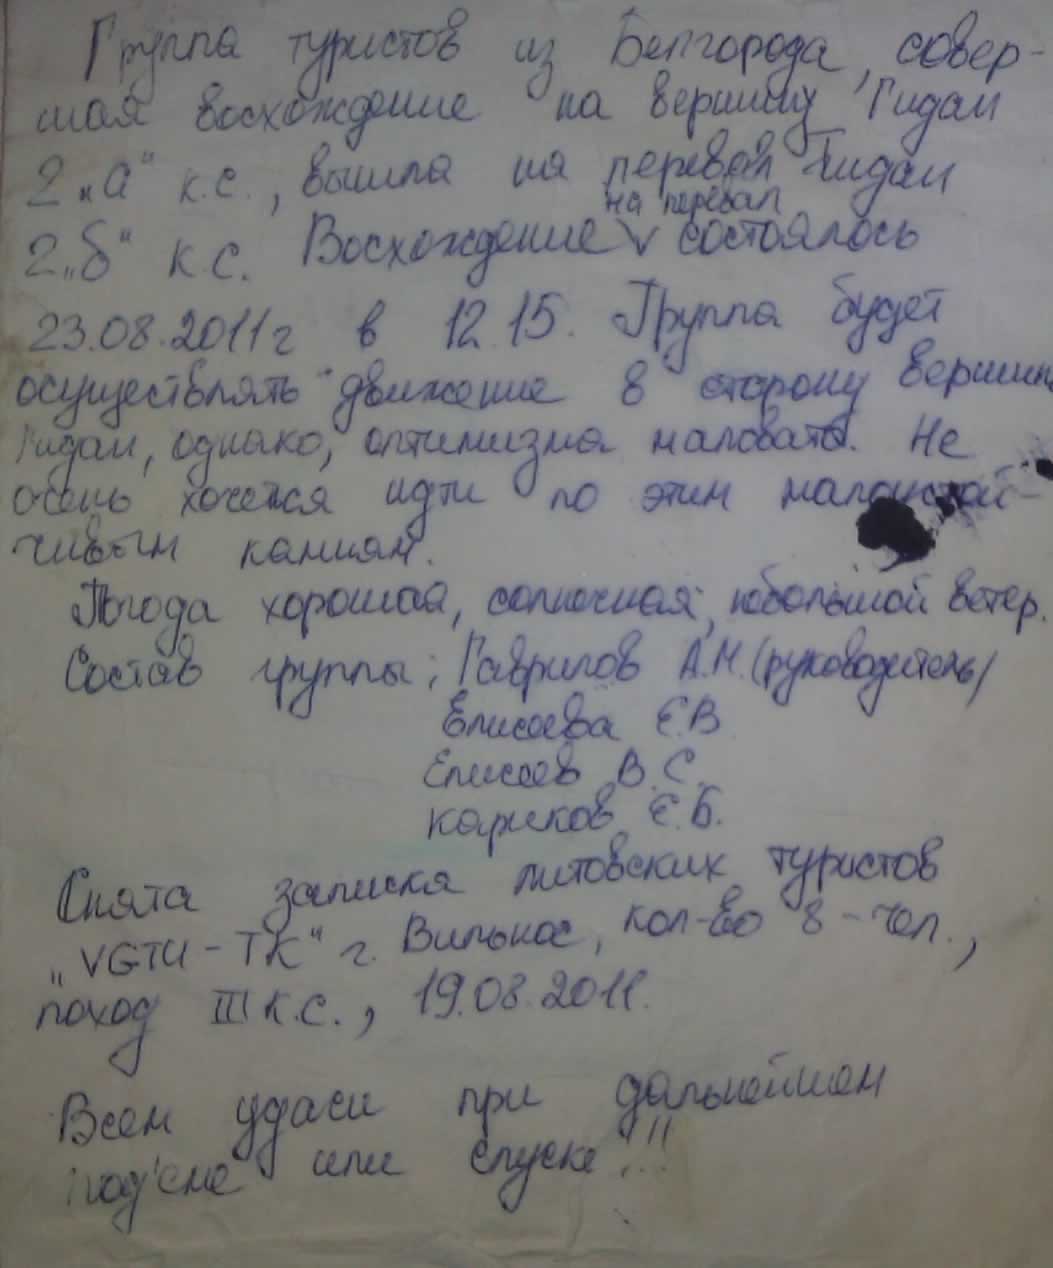 Группа туристов из Белгорода, совер-
шая восхождение на вершину Гидан
2 „а" к.с., вышла на перевал Гидан
на перевал
2 „б" к.с. Восхождение V состоялось
23.08.2011г в 12.15. Группа будет
осуществлять движение в сторону вершины
Гидан, однако, оптимизма маловато. Не
очень хочется идти по этим малоустой-
чивым камням.
Погода хорошая, солнечная, небольшой ветер.
Состав группы: Гаврилов А.Н. (руководитель)
Елисеева Е.В.
Елисеев В.С.
Кариков Е.Б.
Снята записка литовских туристов
„VGTU-TK" г. Вильнюс, кол-во 8-чел.,
поход III к.с., 19.08.2011.
Всем удачи при дальнейшем
под'еме или спуске!!!